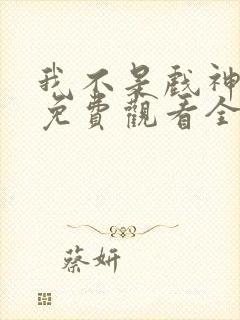 我不是戲神
免費觀看全
蔡妍